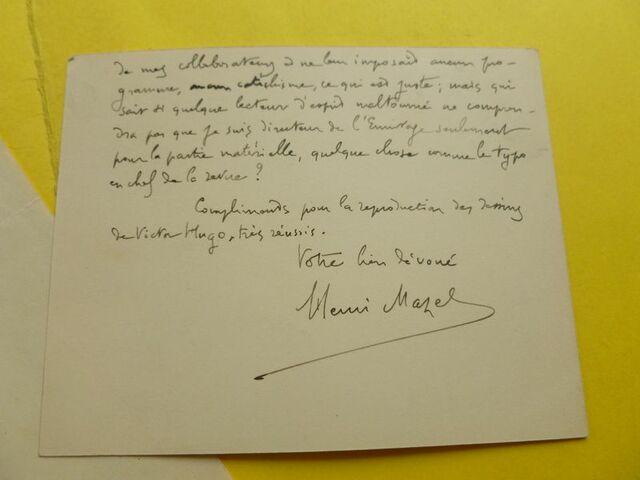 de mes collaborateurs et ne leur imposait aucun pro-
gramme, catéchisme, ce qui est juste ; mais qui
sait si quelque lecteur d'esprit maltourné ne compren-
dra pas que je suis directeur de l'Ermitage seulement
pour la partie matérielle, quelque chose comme le typo
en chef de la revue ?
Compliments pour la reproduction des dessins
de Victor Hugo, très réussis.
Votre bien dévoué
Henri Mazel